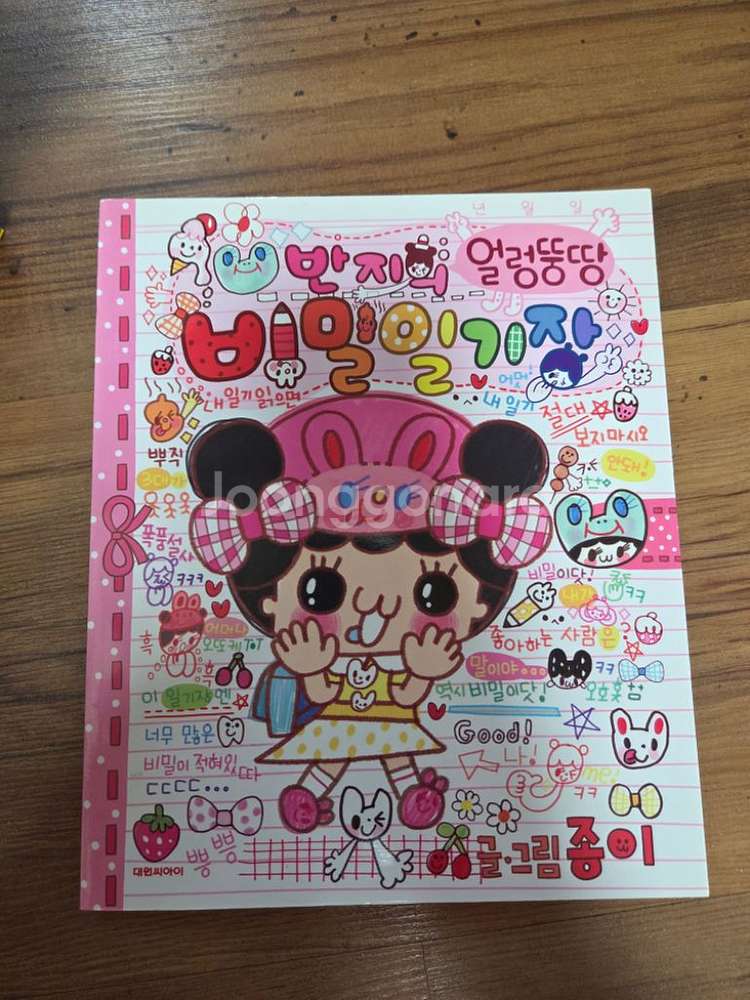 년 월 일
반지의 얼렁뚱땅
비밀일기장
어멋!
내 일기 읽으면
내 일기
절대
보지마시오
뿌직
안돼!
폭풍설사
비밀이닷!
ㅋㅋㅋ
내가
ㅋㅋ
흑
어머나
오또케 ToT
좋아하는 사람은?
말이야...
ㅋㅋ
이 일기장엔
역시 비밀이닷!
너무 많은
Good!
나!
비밀이 적혀있따
ㄷㄷㄷㄷ...
me!
ㅋㅋ
뿡 뿡
글·그림 종이
대원씨아이
loonggonara